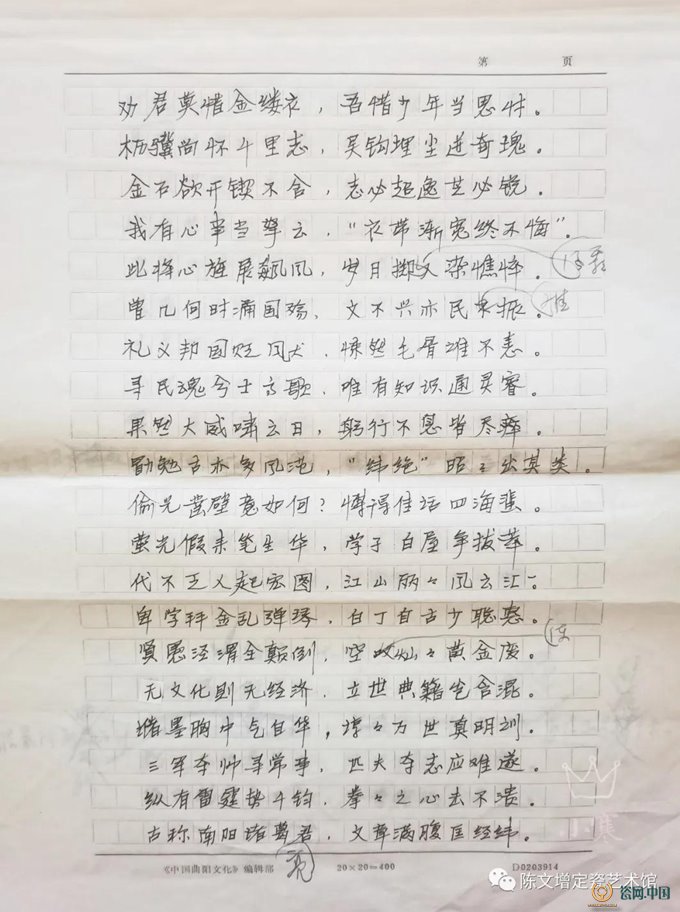 第 页
劝君莫惜金缕衣，吾惜少年当思时。
枥骥尚怀千里志，吴钩埋尘迸奇瑰。
金石欲开锲不舍，志必超逸芒必锐。
我有心事当擎云，“衣带渐宽终不悔”。
此将心旌展飙风，岁月掷 染憔悴。
曾几何时涌国殇，文不兴亦民 振。
礼义邦国贬风犬，悚然毛骨谁不恚。
寻民魂兮士高歌，唯有知识通灵睿。
果然大威啸云日，躬行不息皆尽瘁。
勖勉古标多风范，“纬绝”昭々出其类。
偷光凿壁竟如何？博得佳话四海蜚。
萤光假来笔生华，学子白屋争拔萃。
代不乏人起宏图，江山丽々风云汇。
卑学拜金乱弹琴，白丁自古少聪慧。
贤愚泾渭全颠倒，空 灿々黄金废。
无文化则无经济，立世典籍包含混。
储墨胸中气自华，谆々万世真明训。
三军夺帅寻常事，匹夫夺志应难遂。
纵有雷霆势千钧，拳々之心去不溃。
古称南阳诸葛君，文章满腹匡经纬。
亮
《中国曲阳文化》编辑部 20×20=400 D0203914
陈文增定瓷艺术馆
瓷网.中国